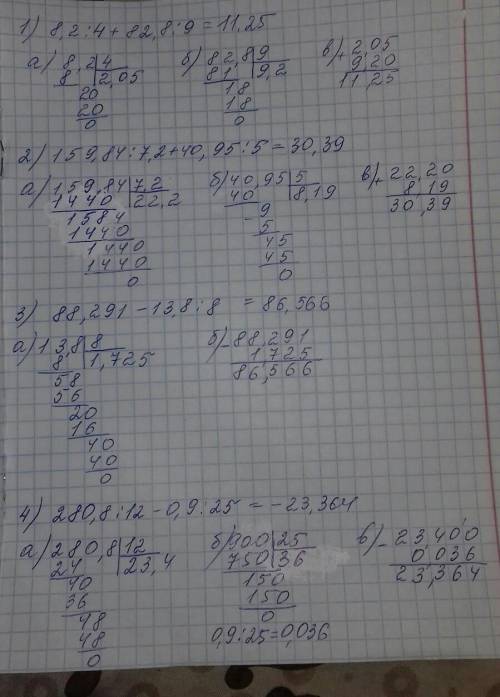 1) 8,2:4+82,8:9=11,25
а) 8,2|4 б) 82,8|9 в)+2,05
8 |2,05 81 |9,2 9,20
20 18 11,25
20 18
0 0
2) 159,84:7,2+40,95:5=30,39
а) 159,84|7,2 б) 40,95|5 в)+22,20
1440 |22,2 40 |8,19 8,19
1584 9 30,39
1440 5
1440 45
1440 45
0 0
3) 88,291-13,8:8 =86,566
а) 13,8|8 б)-88,291
8 |1,725 1,725
58 86,566
56
20
16
40
40
0
4) 280,8:12-0,9:25=-23,364
а) 280,8|12 б) 900|25 в)-23,400
24 |23,4 750|36 0,036
40 150 23,364
36 150
48 0
48 0,9:25=0,036
0